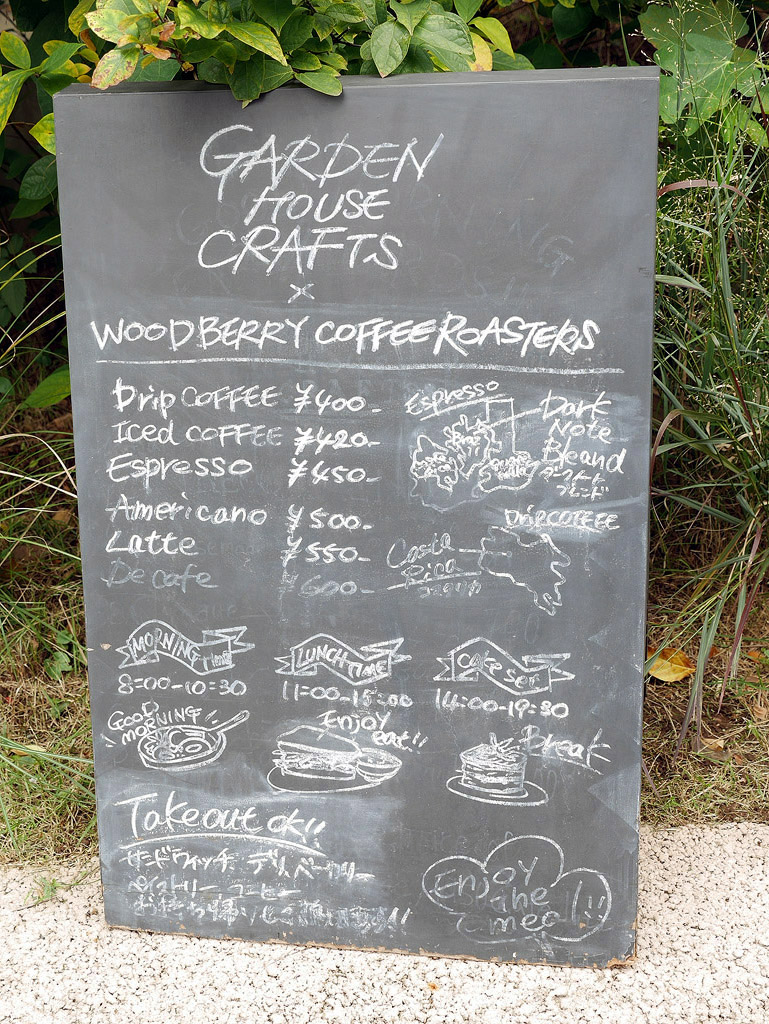 GARDEN
HOUSE
CRAFTS
×
WOODBERRY COFFEE ROASTERS
Drip COFFEE ¥400-
Iced COFFEE ¥420-
Espresso ¥450-
Americano ¥500-
Latte ¥550-
Decafe ¥600-
Espresso
Dark
Note
Bleand
ダークノート
ブレンド
Drip COFFEE
Costa
Rica
MORNING TIME
8:00-10:30
GOOD
MORNING!
LUNCH TIME
11:00-15:00
Enjoy
eat!!
Cafe Set
14:00-19:30
Break
Takeout ok!!
サンドウィッチ デリ、ベーカリー
ペイストリー、コーヒー
お持ち帰り
Enjoy
the
meal!!